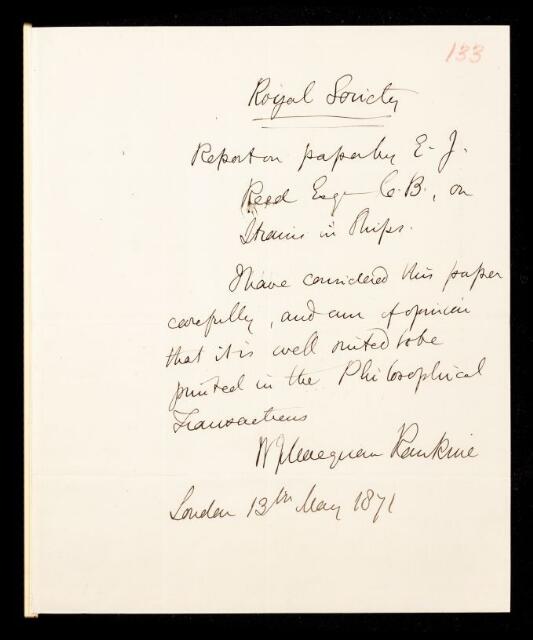 133
Royal Society
Report on paper by E. J.
Reed Esqr C.B., on
Strains in Ships.
I have considered this paper
carefully, and am of opinion
that it is well suited to be
printed in the Philosophical
Transactions
W J Macquorn Rankine
London 13th May 1871